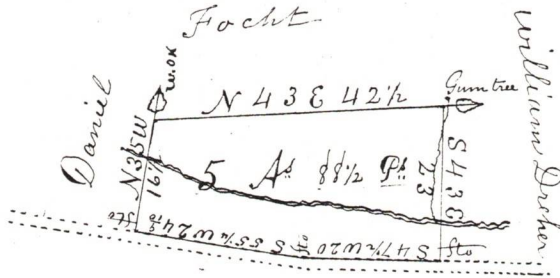 Focht
Daniel
William Dreher
W. OK
Gum tree
N 43 E 42½
N 35 W
16½
5 As 88½ Ps
S 43 E
23
Sto
S 55¼ W 24 3/10
Sto
S 47½ W 20
Sto